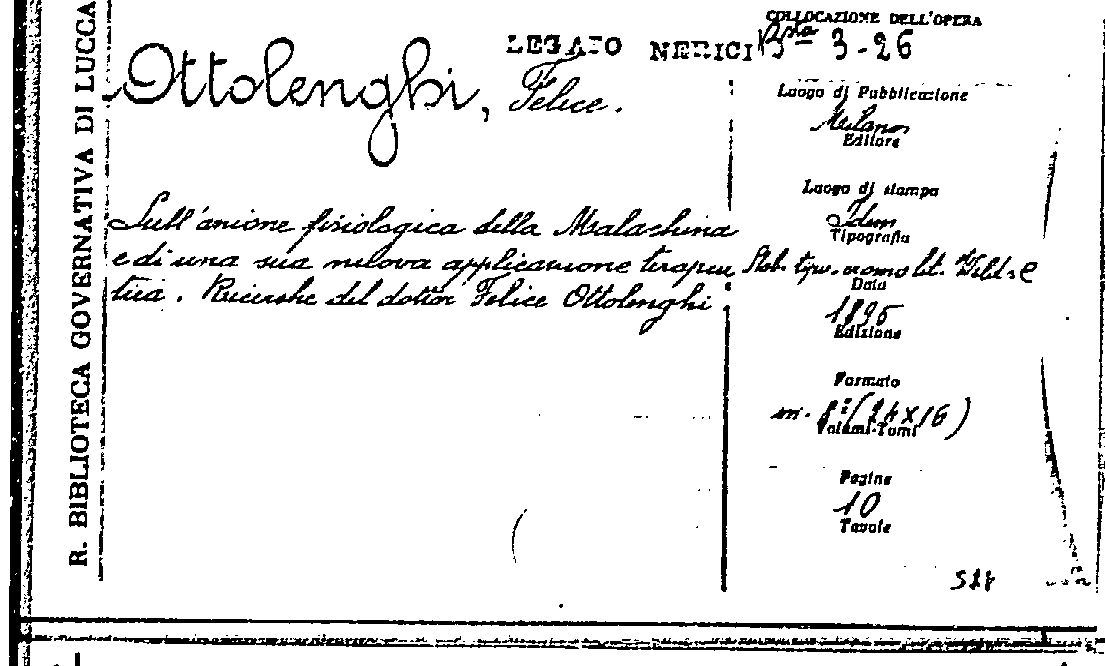 R. BIBLIOTECA GOVERNATIVA DI LUCCA
COLLOCAZIONE DELL'OPERA
LEGATO NERICI Bsta 3-26
Ottolenghi, Felice.
Sull'azione fisiologica della Malachina
e di una sua nuova applicazione terapeu
tica. Ricerche del dottor Felice Ottolenghi
Luogo di Pubblicazione
Milano
Editore
Luogo di stampa
Idem
Tipografia
Stab. tipo. cromo lit.
Data
Edizione
Formato
in. 8º (24 x 16)
Volumi-Tomi
Pagine
10
Tavole